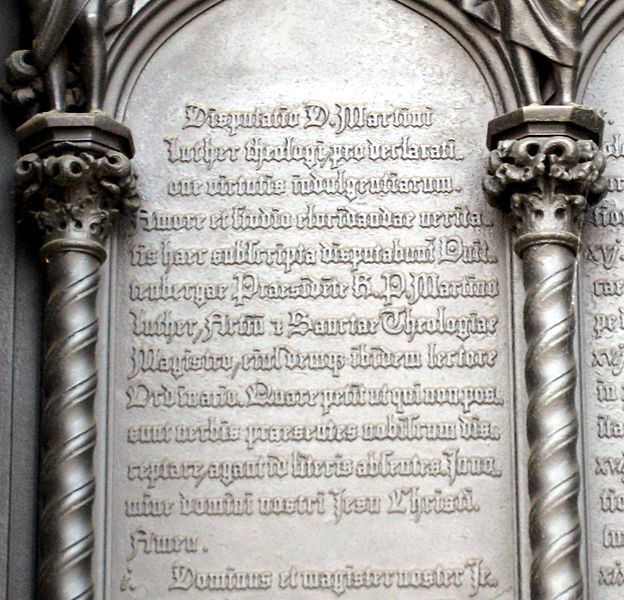 Disputatio D. Martini
Luther theologi, pro declarati.
one virtutis indulgentiarum.
Amore et studio elucidandae verita
tis haec subscripta disputabunt Witt.
tenbergae Praesidente R. P. Martino
Luther, Artiu & Sanctae Theologiae
Magistro, eiusdemq ibidem lectore
Ordinario. Quare petit ut qui non pos.
sunt verbis praesentes nobiscum dis.
ceptare, agant id literis absentes. Jn no.
mine domini nostri Jesu Christi.
Amen.
i. Dominus et magister noster Je.
xvj.
xvij
xvii